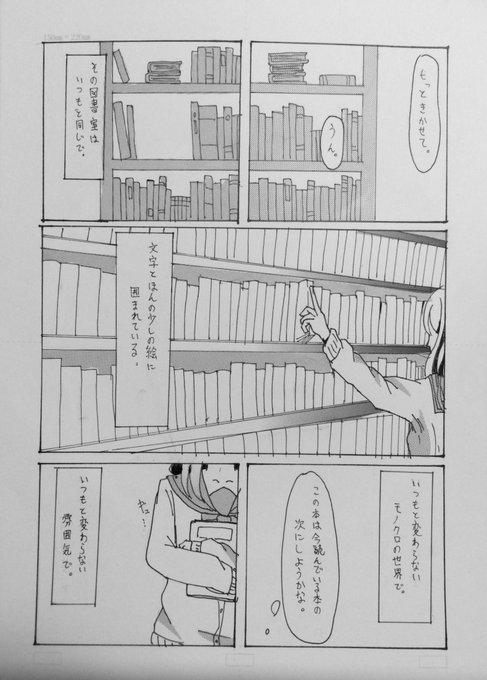 もっときかせて。
うん。
その図書室は
いつもと同じで。
文字とほんの少しの絵に
囲まれている。
いつもと変わらない
モノクロの世界で。
この本は今読んでいる本の
次にしようかな。
ギュ…
いつもと変わらない
雰囲気で。